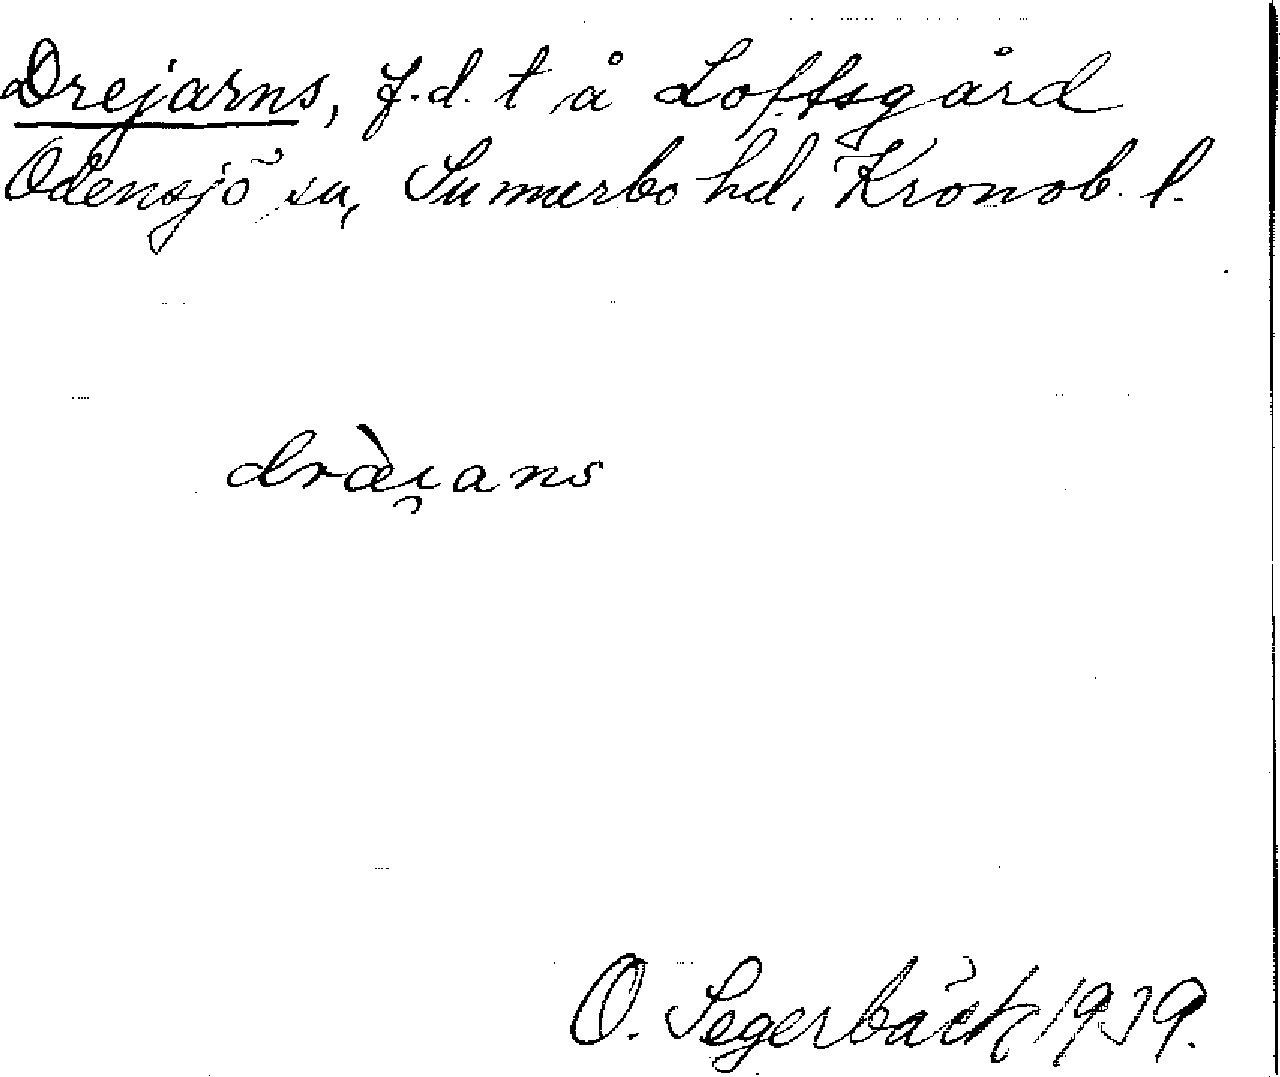 Drejarns, f.d. t å Loftsgård
Odensjö sn, Sunnerbo hd, Kronob. l.
dræ̀i̯ans
O. Segerbäck 1939.